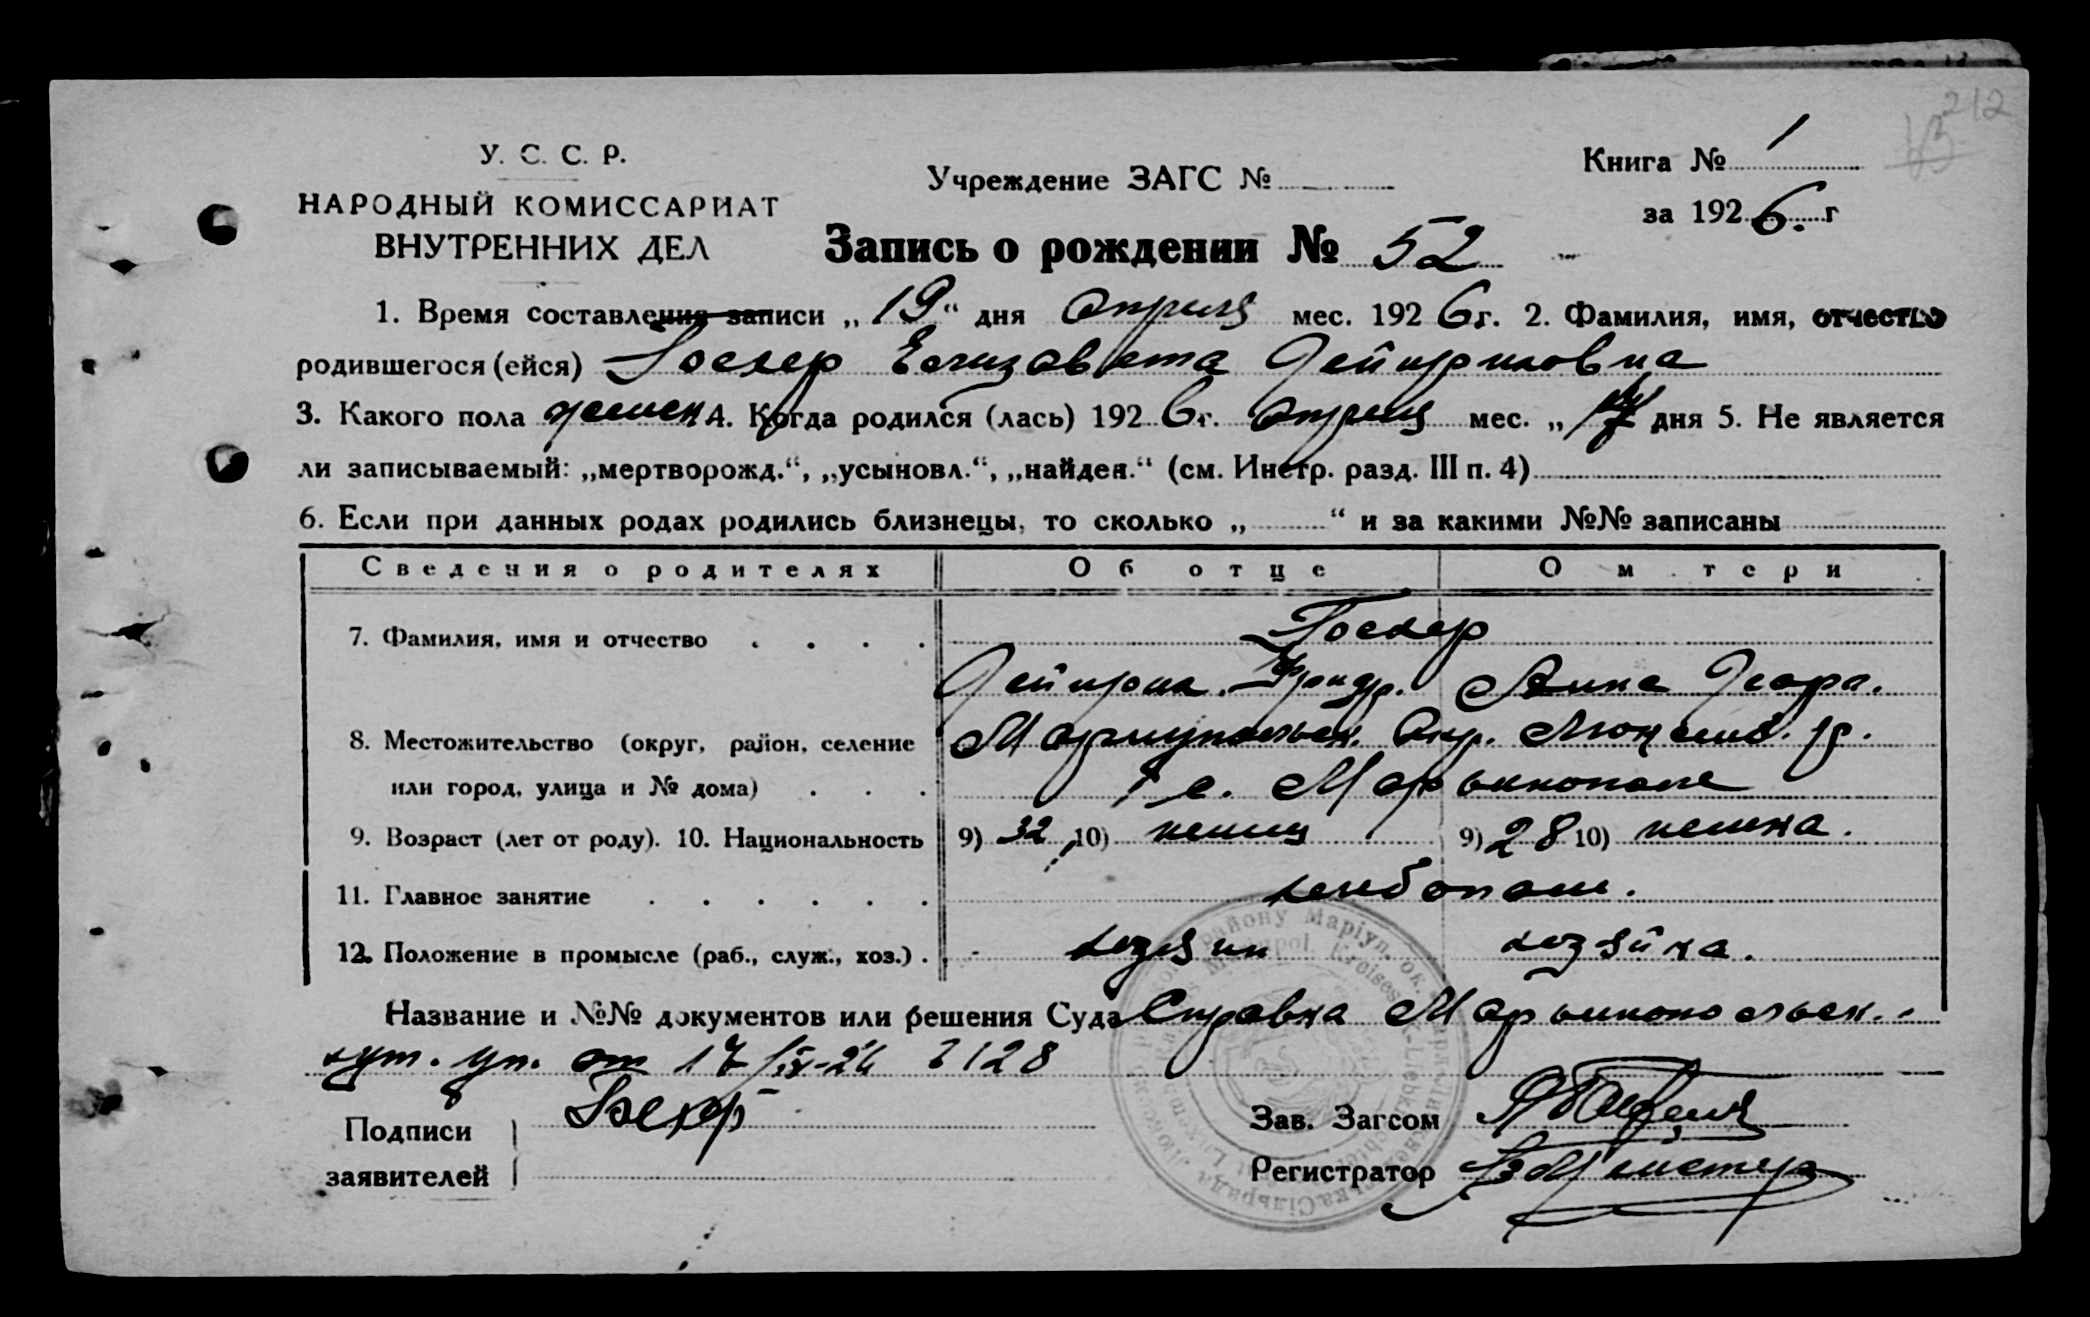 212
У. С. С. Р.
НАРОДНЫЙ КОМИССАРИАТ
ВНУТРЕННИХ ДЕЛ
Учреждение ЗАГС №
Книга № 1
за 1926. г
Запись о рождении № 52
1. Время составления записи „19“ дня апреля мес. 1926 г. 2. Фамилия, имя, отчество
родившегося (ейся) Госхер Елизавета Гейнриховна
3. Какого пола женск 4. Когда родился (лась) 1926 г. апреля мес. „ дня 5. Не является
ли записываемый: „мертворожд.“, „усыновл.“, „найден.“ (см. Инстр. разд. III п. 4)
6. Если при данных родах родились близнецы, то сколько „ “ и за какими №№ записаны
Сведения о родителях Об отце О м тери
7. Фамилия, имя и отчество Госхер
Гейнрих. Фридр. Анна Георг.
8. Местожительство (округ, район, селение Мариупольск. Окр. Люксемб. р.
или город, улица и № дома) с. Марьинополе
9. Возраст (лет от роду). 10. Национальность 9) 32 10) немец 9) 28 10) немка.
11. Главное занятие хлебопаш.
12. Положение в промысле (раб., служ., хоз.) хозяин хозяйка.
Название и №№ документов или решения Суда Справка Марьинопольск.
хут. уп. от 17/IV-26 № 128
Подписи
заявителей
Зав. Загсом
Регистратор
району Маріуп. ок.